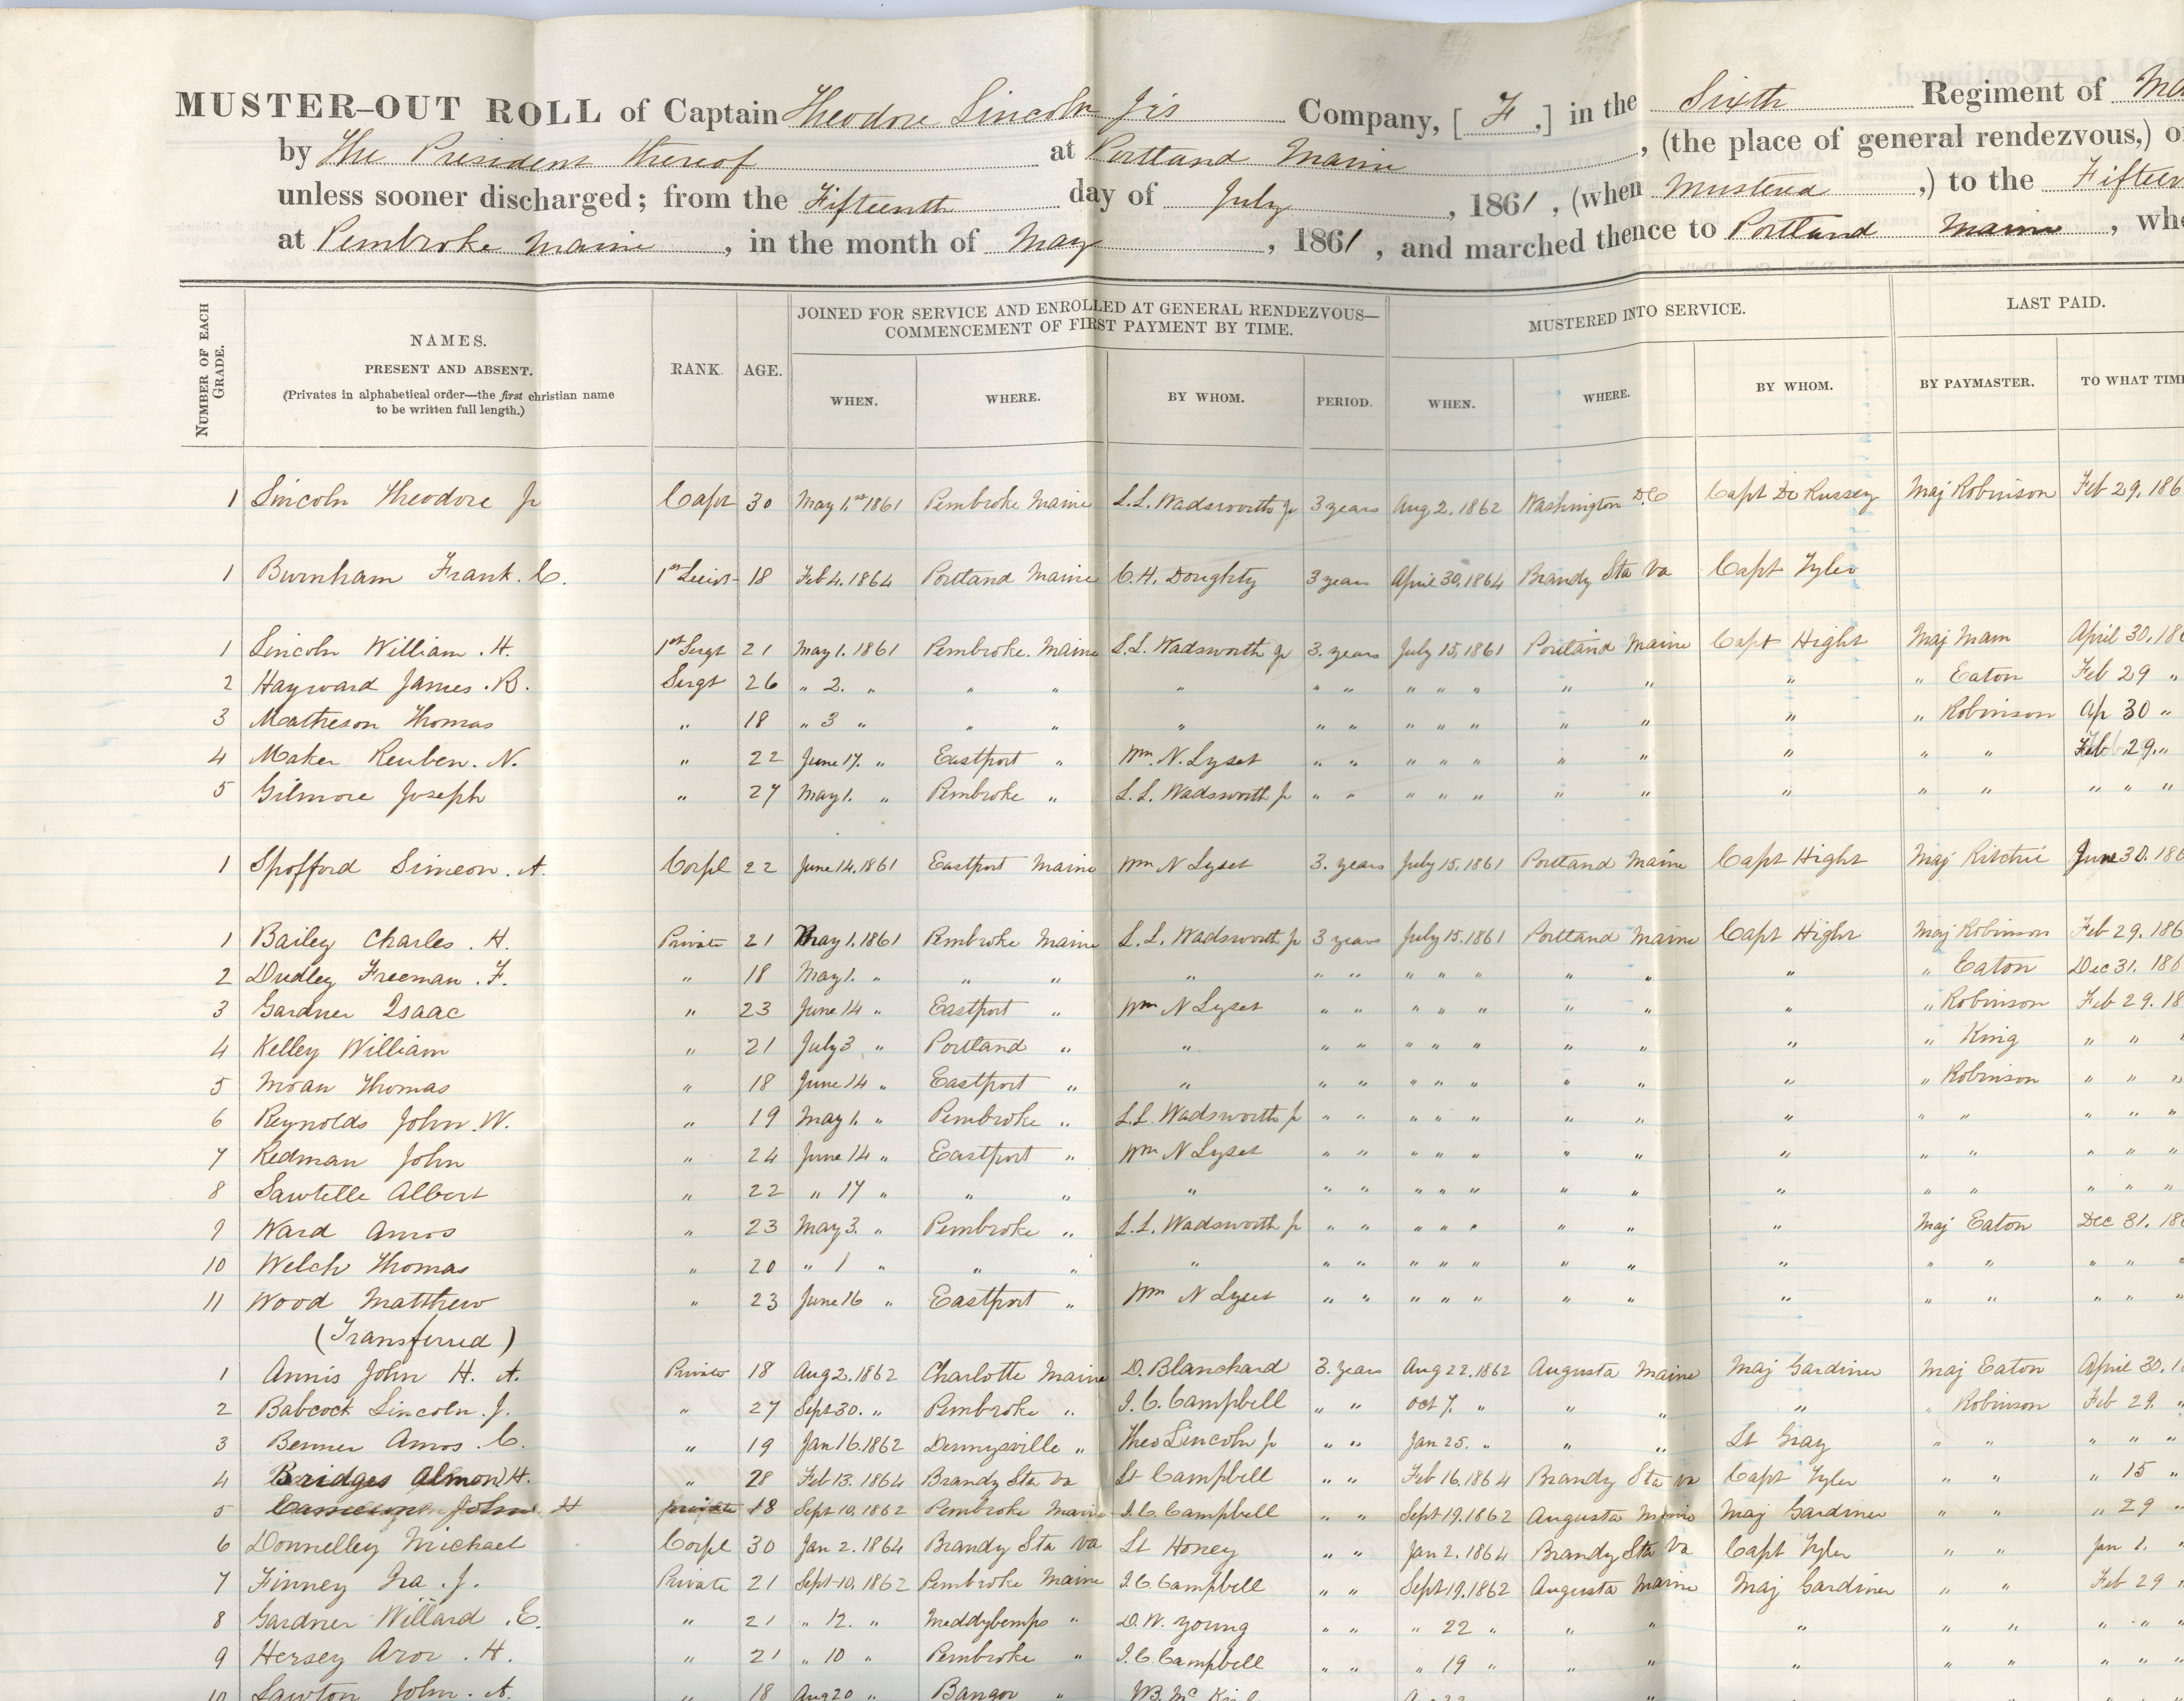 MUSTER-OUT ROLL of Captain Theodore Lincoln Jrs Company, [ F ,] in the Sixth Regiment of
by The President thereof at Portland Maine , (the place of general rendezvous,)
unless sooner discharged; from the Fifteenth day of July , 1861 , (when Mustered ,) to the
at Pembroke Maine , in the month of May , 1861 , and marched thence to Portland Maine ,
NUMBER OF EACH GRADE.
NAMES.
PRESENT AND ABSENT.
(Privates in alphabetical order—the first christian name
to be written full length.)
RANK.
AGE.
JOINED FOR SERVICE AND ENROLLED AT GENERAL RENDEZVOUS—
COMMENCEMENT OF FIRST PAYMENT BY TIME.
WHEN. WHERE. BY WHOM. PERIOD.
MUSTERED INTO SERVICE.
WHEN. WHERE. BY WHOM.
LAST PAID.
BY PAYMASTER. TO WHAT TIM
1 Lincoln Theodore Jr Capt 30 May 1st 1861 Pembroke Maine L.L. Wadsworth Jr 3 years Aug 2. 1862 Washington D.C Capt De Russey Maj Robinson Feb 29. 186
1 Burnham Frank. C. 1st Lieut 18 Feb 4. 1864 Portland Maine C.H. Doughty 3 years April 30, 1864 Brandy Sta Va Capt Tyler
1 Lincoln William. H. 1st Sergt 21 May 1. 1861 Pembroke. Maine L.L. Wadsworth Jr 3. years July 15, 1861 Portland Maine Capt Hight Maj Mann April 30, 18
2 Hayward James. B. Sergt 26 " 2. " " " " " " " " " " " " " Eaton Feb 29 "
3 Matheson Thomas " 18 " 3 " " " " " " " " " " " " " Robinson Ap 30 "
4 Maker Reuben. N. " 22 June 17. " Eastport " Wm. N. Lyset " " " " " " " " " " Feb 29. "
5 Gilmore Joseph " 27 May 1. " Pembroke " L.L. Wadsworth Jr " " " " " " " " " " " " "
1 Spofford Simeon. A. Corpl 22 June 14. 1861 Eastport Maine Wm N Lyset 3. years July 15. 1861 Portland Maine Capt Hight Maj Ritchie June 30. 186
1 Bailey Charles. H. Private 21 May 1. 1861 Pembroke Maine L.L. Wadsworth Jr 3 years July 15. 1861 Portland Maine Capt Hight Maj Robinson Feb 29. 186
2 Dudley Freeman. F. " 18 May 1. " " " " " " " " " " " " " Eaton Dec 31. 186
3 Gardner Isaac " 23 June 14 " Eastport " Wm N Lyset " " " " " " " " " Robinson Feb 29. 18
4 Kelley William " 21 July 3 " Portland " " " " " " " " " " " King " " "
5 Moan Thomas " 18 June 14 " Eastport " " " " " " " " " " " Robinson " " "
6 Reynolds John. W. " 19 May 1. " Pembroke " L.L. Wadsworth Jr " " " " " " " " " " " " "
7 Redman John " 24 June 14 " Eastport " Wm N Lyset " " " " " " " " " " " " "
8 Sawtelle Albert " 22 " 17 " " " " " " " " " " " " " " " " "
9 Ward Amos " 23 May 3. " Pembroke " L.L. Wadsworth Jr " " " " " " " " Maj Eaton Dec 31. 18
10 Welch Thomas " 20 " 1 " " " " " " " " " " " " " " " " "
11 Wood Matthew " 23 June 16 " Eastport " Wm N Lyset " " " " " " " " " " " " "
(Transferred)
1 Annis John H. A. Private 18 Aug 2. 1862 Charlotte Maine D. Blanchard 3. years Aug 22. 1862 Augusta Maine Maj Gardiner Maj Eaton April 30. 1
2 Babcock Lincoln. J. " 27 Sept 30. " Pembroke " I.C. Campbell " " Oct 7. " " " " " Robinson Feb 29. "
3 Benner Amos. C. " 19 Jan 16. 1862 Dennysville " Theo Lincoln Jr " " Jan 25. " " " Lt Gray " " " " "
4 Bridges Almon H. " 28 Feb 13. 1864 Brandy Sta Va Lt Campbell " " Feb 16. 1864 Brandy Sta Va Capt Tyler " " " 15 "
5 John H Private 18 Sept 10. 1862 Pembroke Maine I.C. Campbell " " Sept 19. 1862 Augusta Maine Maj Gardiner " " " 29 "
6 Donnelley Michael Corpl 30 Jan 2. 1864 Brandy Sta Va Lt Honey " " Jan 2. 1864 Brandy Sta Va Capt Tyler " " Jan 1. "
7 Finney Ira. J. Private 21 Sept 10. 1862 Pembroke Maine I.C. Campbell " " Sept 19. 1862 Augusta Maine Maj Gardiner " " Feb 29 "
8 Gardner Willard. E. " 21 " 12. " Meddybemps " D.W. Young " " " 22 " " " " " " " " "
9 Hersey Aror. H. " 21 " 10 " Pembroke " I.C. Campbell " " " 19 " " " " " " " " "
10 Lawton John. A. " 18 Aug 20 " Bangor "